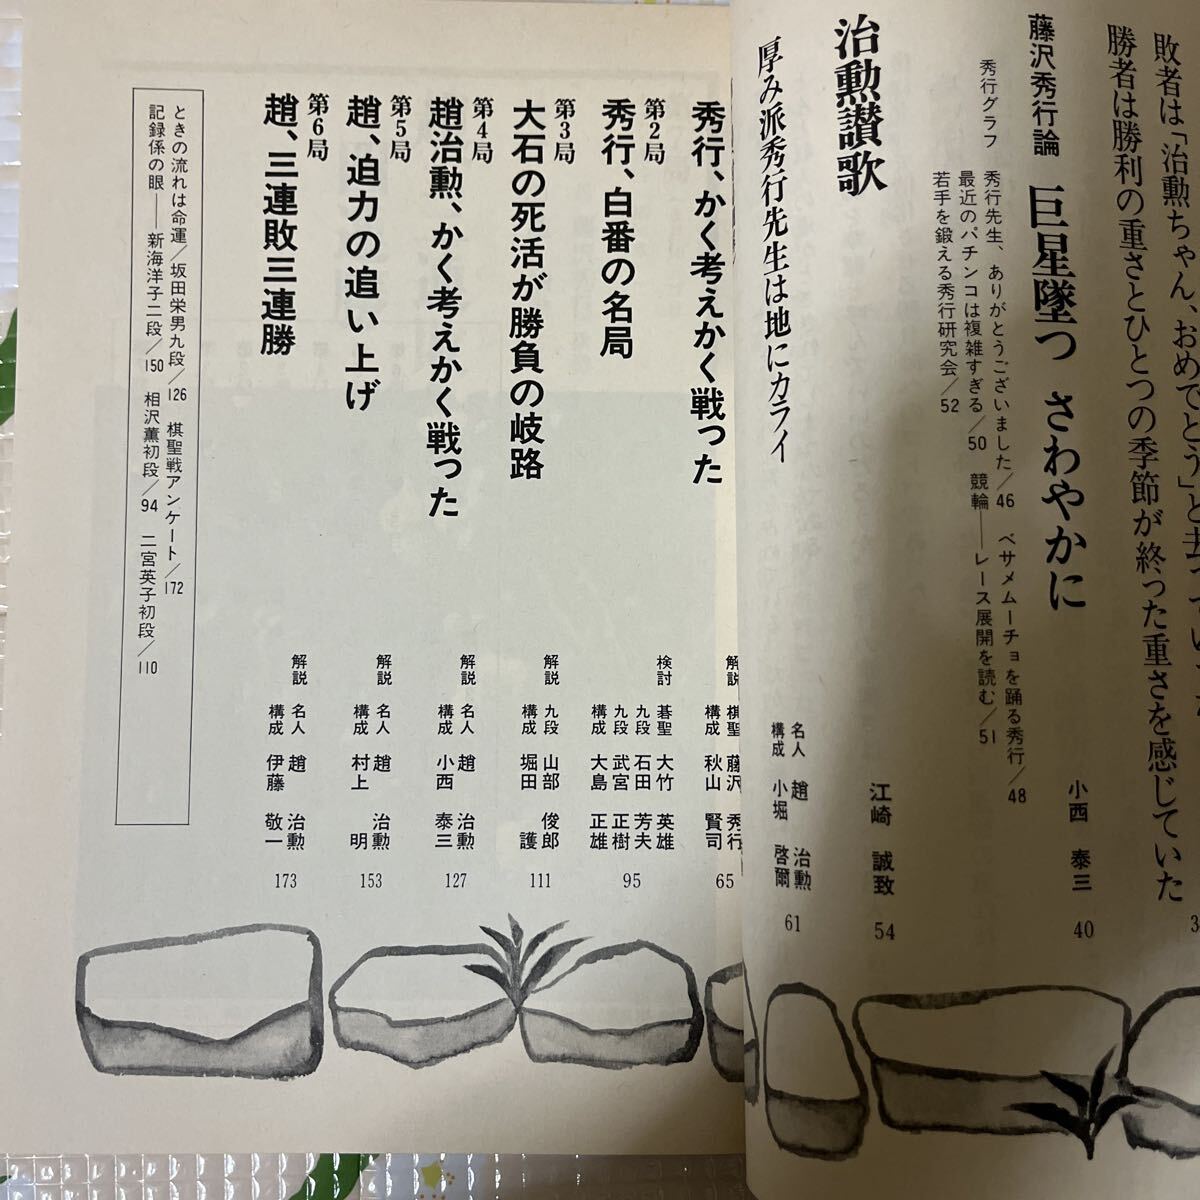 敗者は「治勲ちゃん、おめでとう」と
勝者は勝利の重さとひとつの季節が終った重さを感じていた
藤沢秀行論 巨星墜つ さわやかに 小西 泰三 40
秀行グラフ 秀行先生、ありがとうございました/46 ベサメムーチョを踊る秀行/48
最近のパチンコは複雑すぎる/50 競輪——レース展開を読む/51
若手を鍛える秀行研究会/52
治勲讃歌 江崎 誠致 54
厚み派秀行先生は地にカライ 名人 趙 治勲 構成 小堀 啓爾 61
秀行、かく考えかく戦った 解説 棋聖 藤沢 秀行 構成 秋山 賢司 65
第2局
秀行、白番の名局 検討 碁聖 大竹 英雄 九段 石田 芳夫 九段 武宮 正樹 構成 大島 正雄 95
第3局
大石の死活が勝負の岐路 解説 九段 山部 俊郎 構成 堀田 護 111
第4局
趙治勲、かく考えかく戦った 解説 名人 趙 治勲 構成 小西 泰三 127
第5局
趙、迫力の追い上げ 解説 名人 趙 治勲 構成 村上 明 153
第6局
趙、三連敗三連勝 解説 名人 趙 治勲 構成 伊藤 敬一 173
ときの流れは命運/坂田栄男九段/126 棋聖戦アンケート/172
記録係の眼——新海洋子二段/150 相沢薫初段/94 二宮英子初段/110